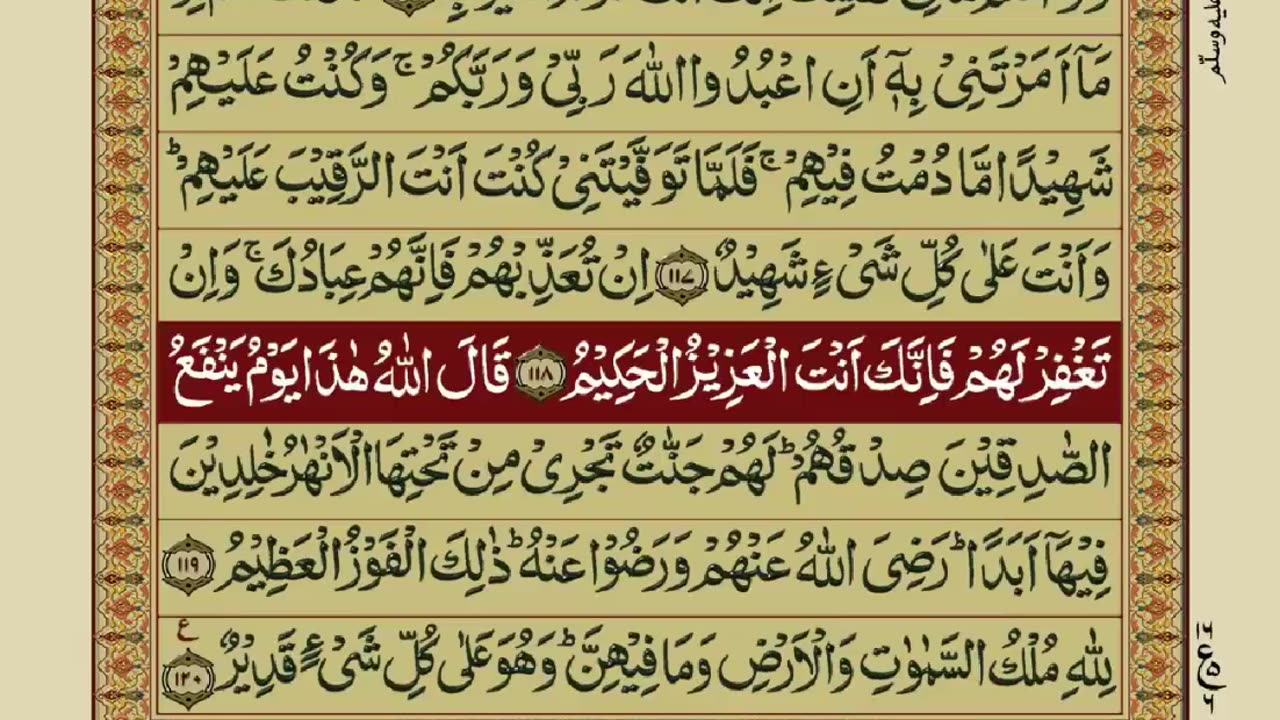 مَآ اَمَرْتَنِیْ بِهٖۤ اَنِ اعْبُدُوا اللّٰهَ رَبِّیْ وَرَبَّكُمْ ۚ وَكُنْتُ عَلَیْهِمْ
شَهِیْدًا مَّا دُمْتُ فِیْهِمْ ۚ فَلَمَّا تَوَفَّیْتَنِیْ كُنْتَ اَنْتَ الرَّقِیْبَ عَلَیْهِمْ ؕ
وَاَنْتَ عَلٰی كُلِّ شَیْءٍ شَهِیْدٌ ﴿۱۱۷﴾ اِنْ تُعَذِّبْهُمْ فَاِنَّهُمْ عِبَادُكَ ۚ وَاِنْ
تَغْفِرْ لَهُمْ فَاِنَّكَ اَنْتَ الْعَزِیْزُ الْحَكِیْمُ ﴿۱۱۸﴾ قَالَ اللّٰهُ هٰذَا یَوْمُ یَنْفَعُ
الصّٰدِقِیْنَ صِدْقُهُمْ ؕ لَهُمْ جَنّٰتٌ تَجْرِیْ مِنْ تَحْتِهَا الْاَنْهٰرُ خٰلِدِیْنَ
فِیْهَاۤ اَبَدًا ؕ رَضِیَ اللّٰهُ عَنْهُمْ وَرَضُوْا عَنْهُ ؕ ذٰلِكَ الْفَوْزُ الْعَظِیْمُ ﴿۱۱۹﴾
لِلّٰهِ مُلْكُ السَّمٰوٰتِ وَالْاَرْضِ وَمَا فِیْهِنَّ ؕ وَهُوَ عَلٰی كُلِّ شَیْءٍ قَدِیْرٌ ﴿۱۲۰﴾ ع
علیه وسلّم